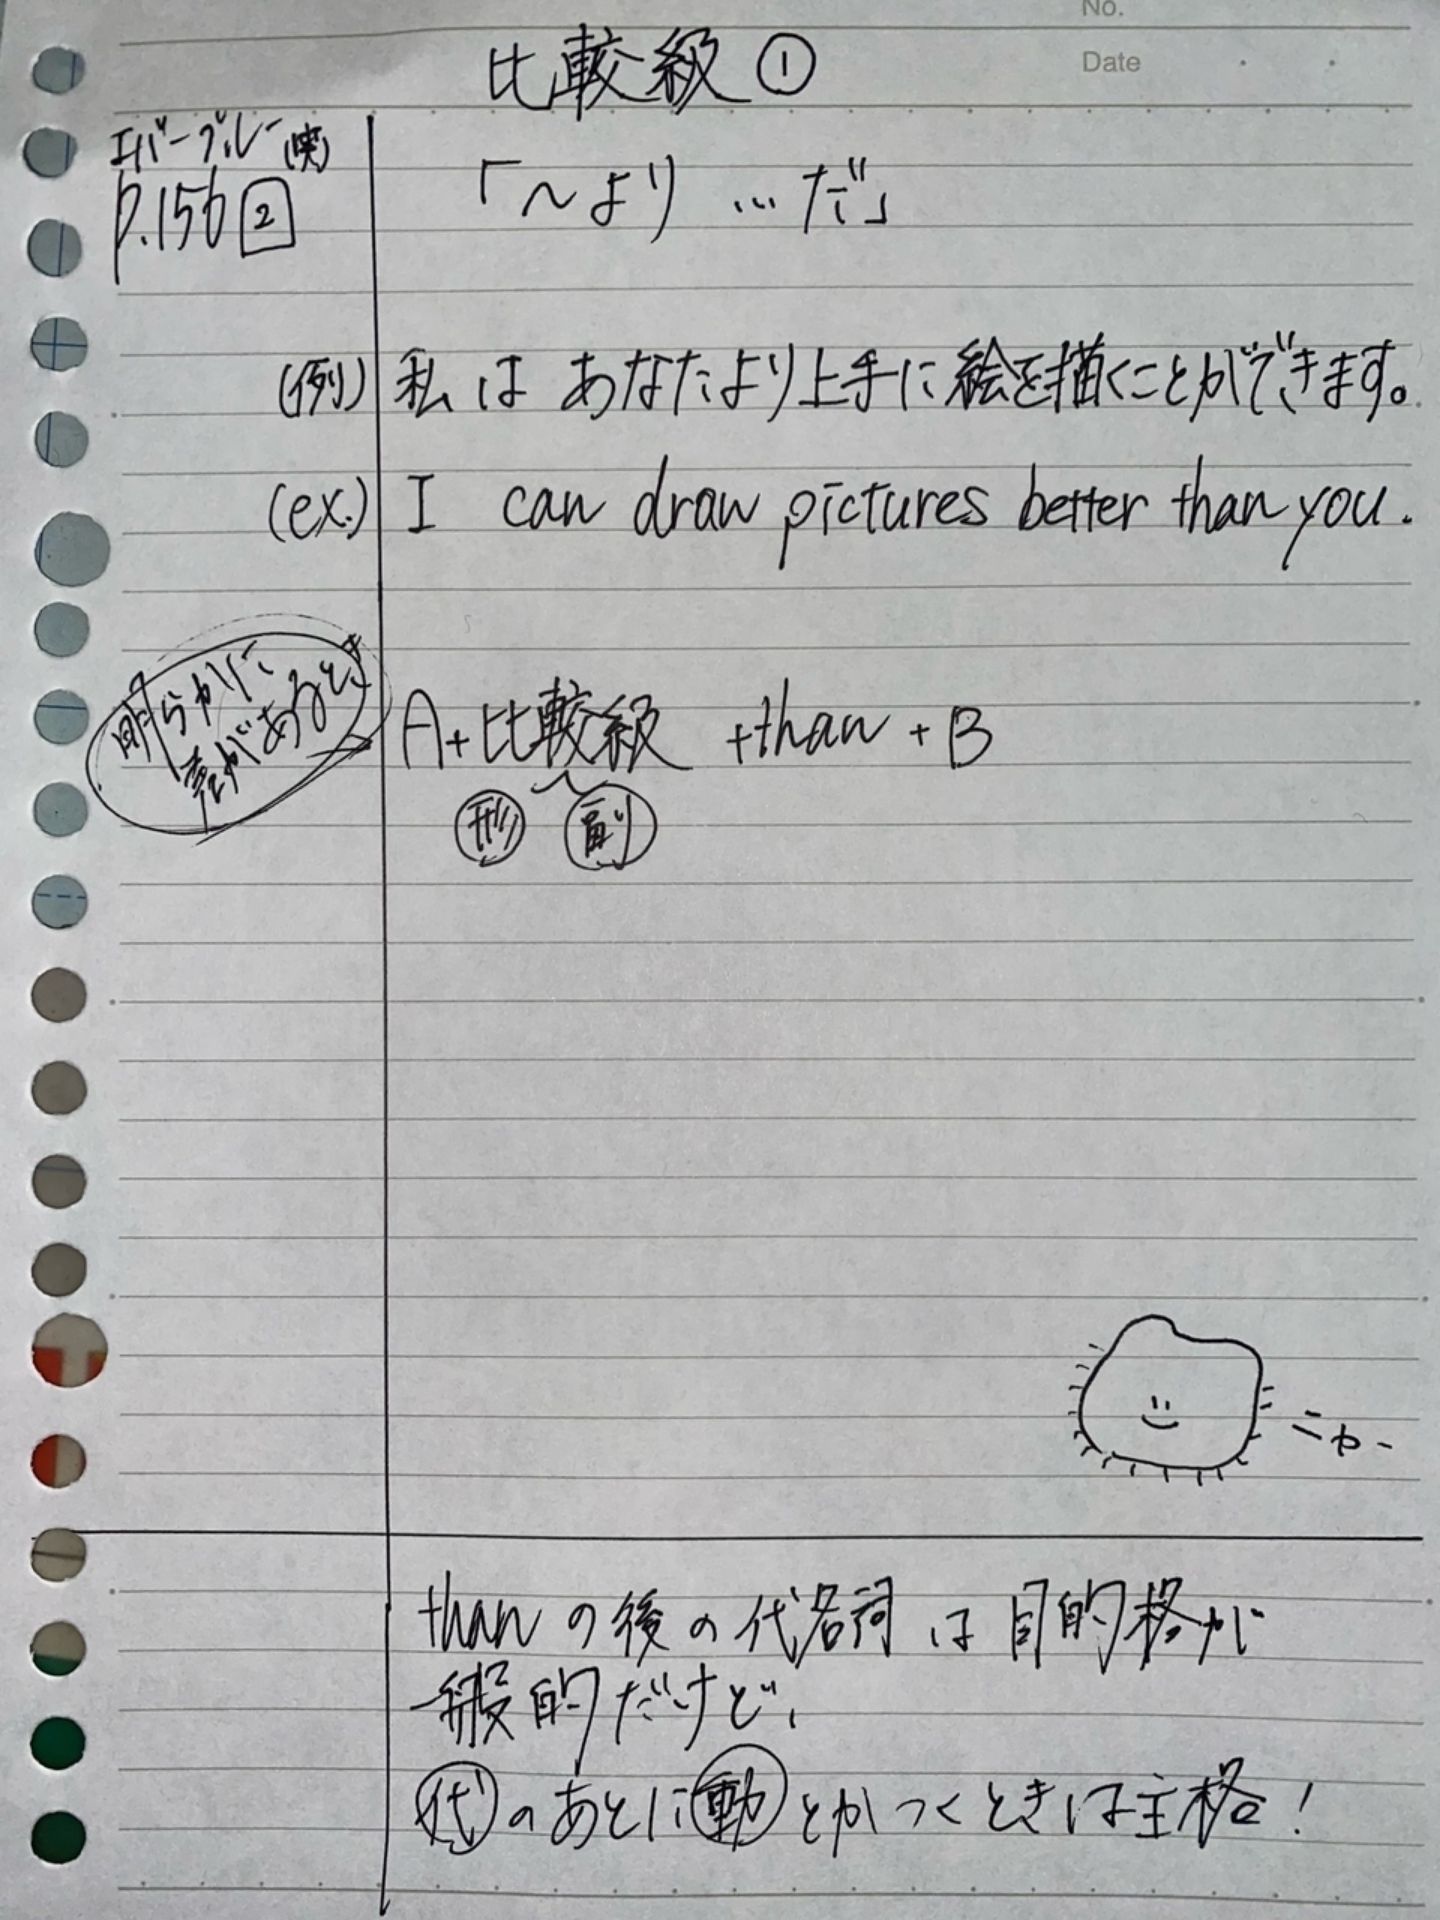 No.
Date
比較級 ①
エバーブルー (英)
P.156 2
「～より …だ」
(例) 私は あなたより上手に絵を描くことができます。
(ex.) I can draw pictures better than you.
明らかに
差があるとき
A+比較級 +than + B
形 副
ニャー
thanの後の代名詞は目的格が
一般的だけど、
代のあとに動とかつくときは主格！